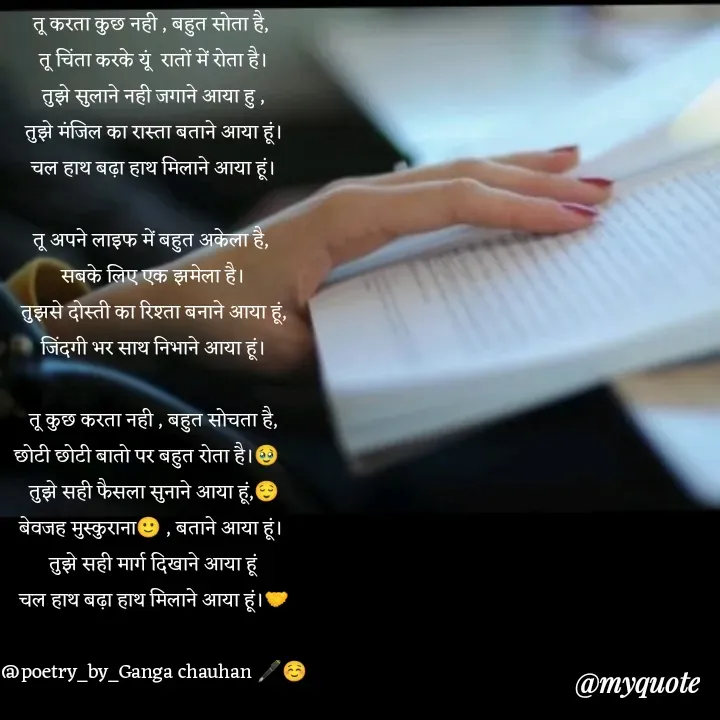 तू करता कुछ नही , बहुत सोता है,
तू चिंता करके यूं रातों में रोता है।
तुझे सुलाने नही जगाने आया हु ,
तुझे मंजिल का रास्ता बताने आया हूं।
चल हाथ बढ़ा हाथ मिलाने आया हूं।
तू अपने लाइफ में बहुत अकेला है,
सबके लिए एक झमेला है।
तुझसे दोस्ती का रिश्ता बनाने आया हूं,
जिंदगी भर साथ निभाने आया हूं।
तू कुछ करता नही , बहुत सोचता है,
छोटी छोटी बातो पर बहुत रोता है।🥹
तुझे सही फैसला सुनाने आया हूं,😌
बेवजह मुस्कुराना🙂 , बताने आया हूं।
तुझे सही मार्ग दिखाने आया हूं
चल हाथ बढ़ा हाथ मिलाने आया हूं।🤝
@poetry_by_Ganga chauhan 🖋️☺️
@myquote